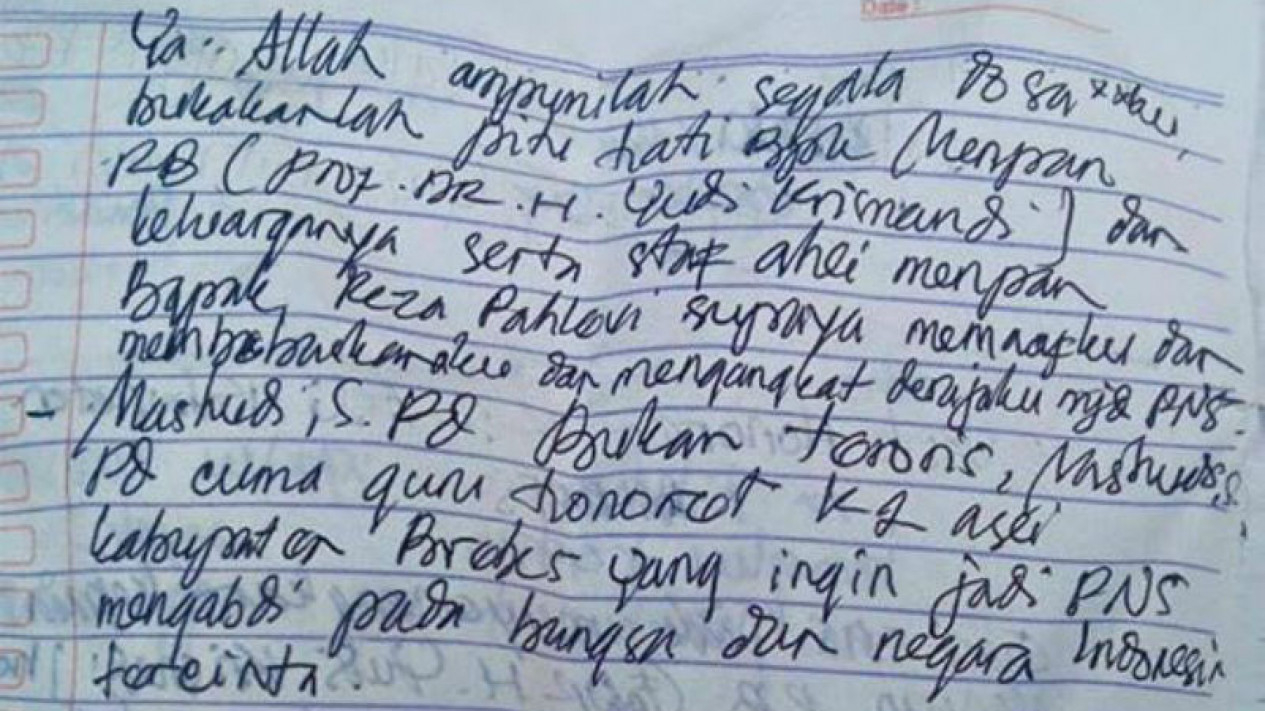 Date :
Ya.. Allah ampunilah segala dosa××ku,
bukakanlah pintu hati Bpk (Menpan
RB (Prof. DR. H. Yudi Krisnandi) dan
keluarganya serta staf ahli menpan
Bapak Reza Pahlevi supaya memaafku dan
membebaskanku dan mengangkat derajatku mjd PNS.
- Mashudi, S. Pd Bukan teroris, Mashudi, S.
Pd cuma guru honorer K2 asli
kabupaten Brebes yang ingin jadi PNS
mengabdi pada bangsa dan negara Indonesia
tercinta.